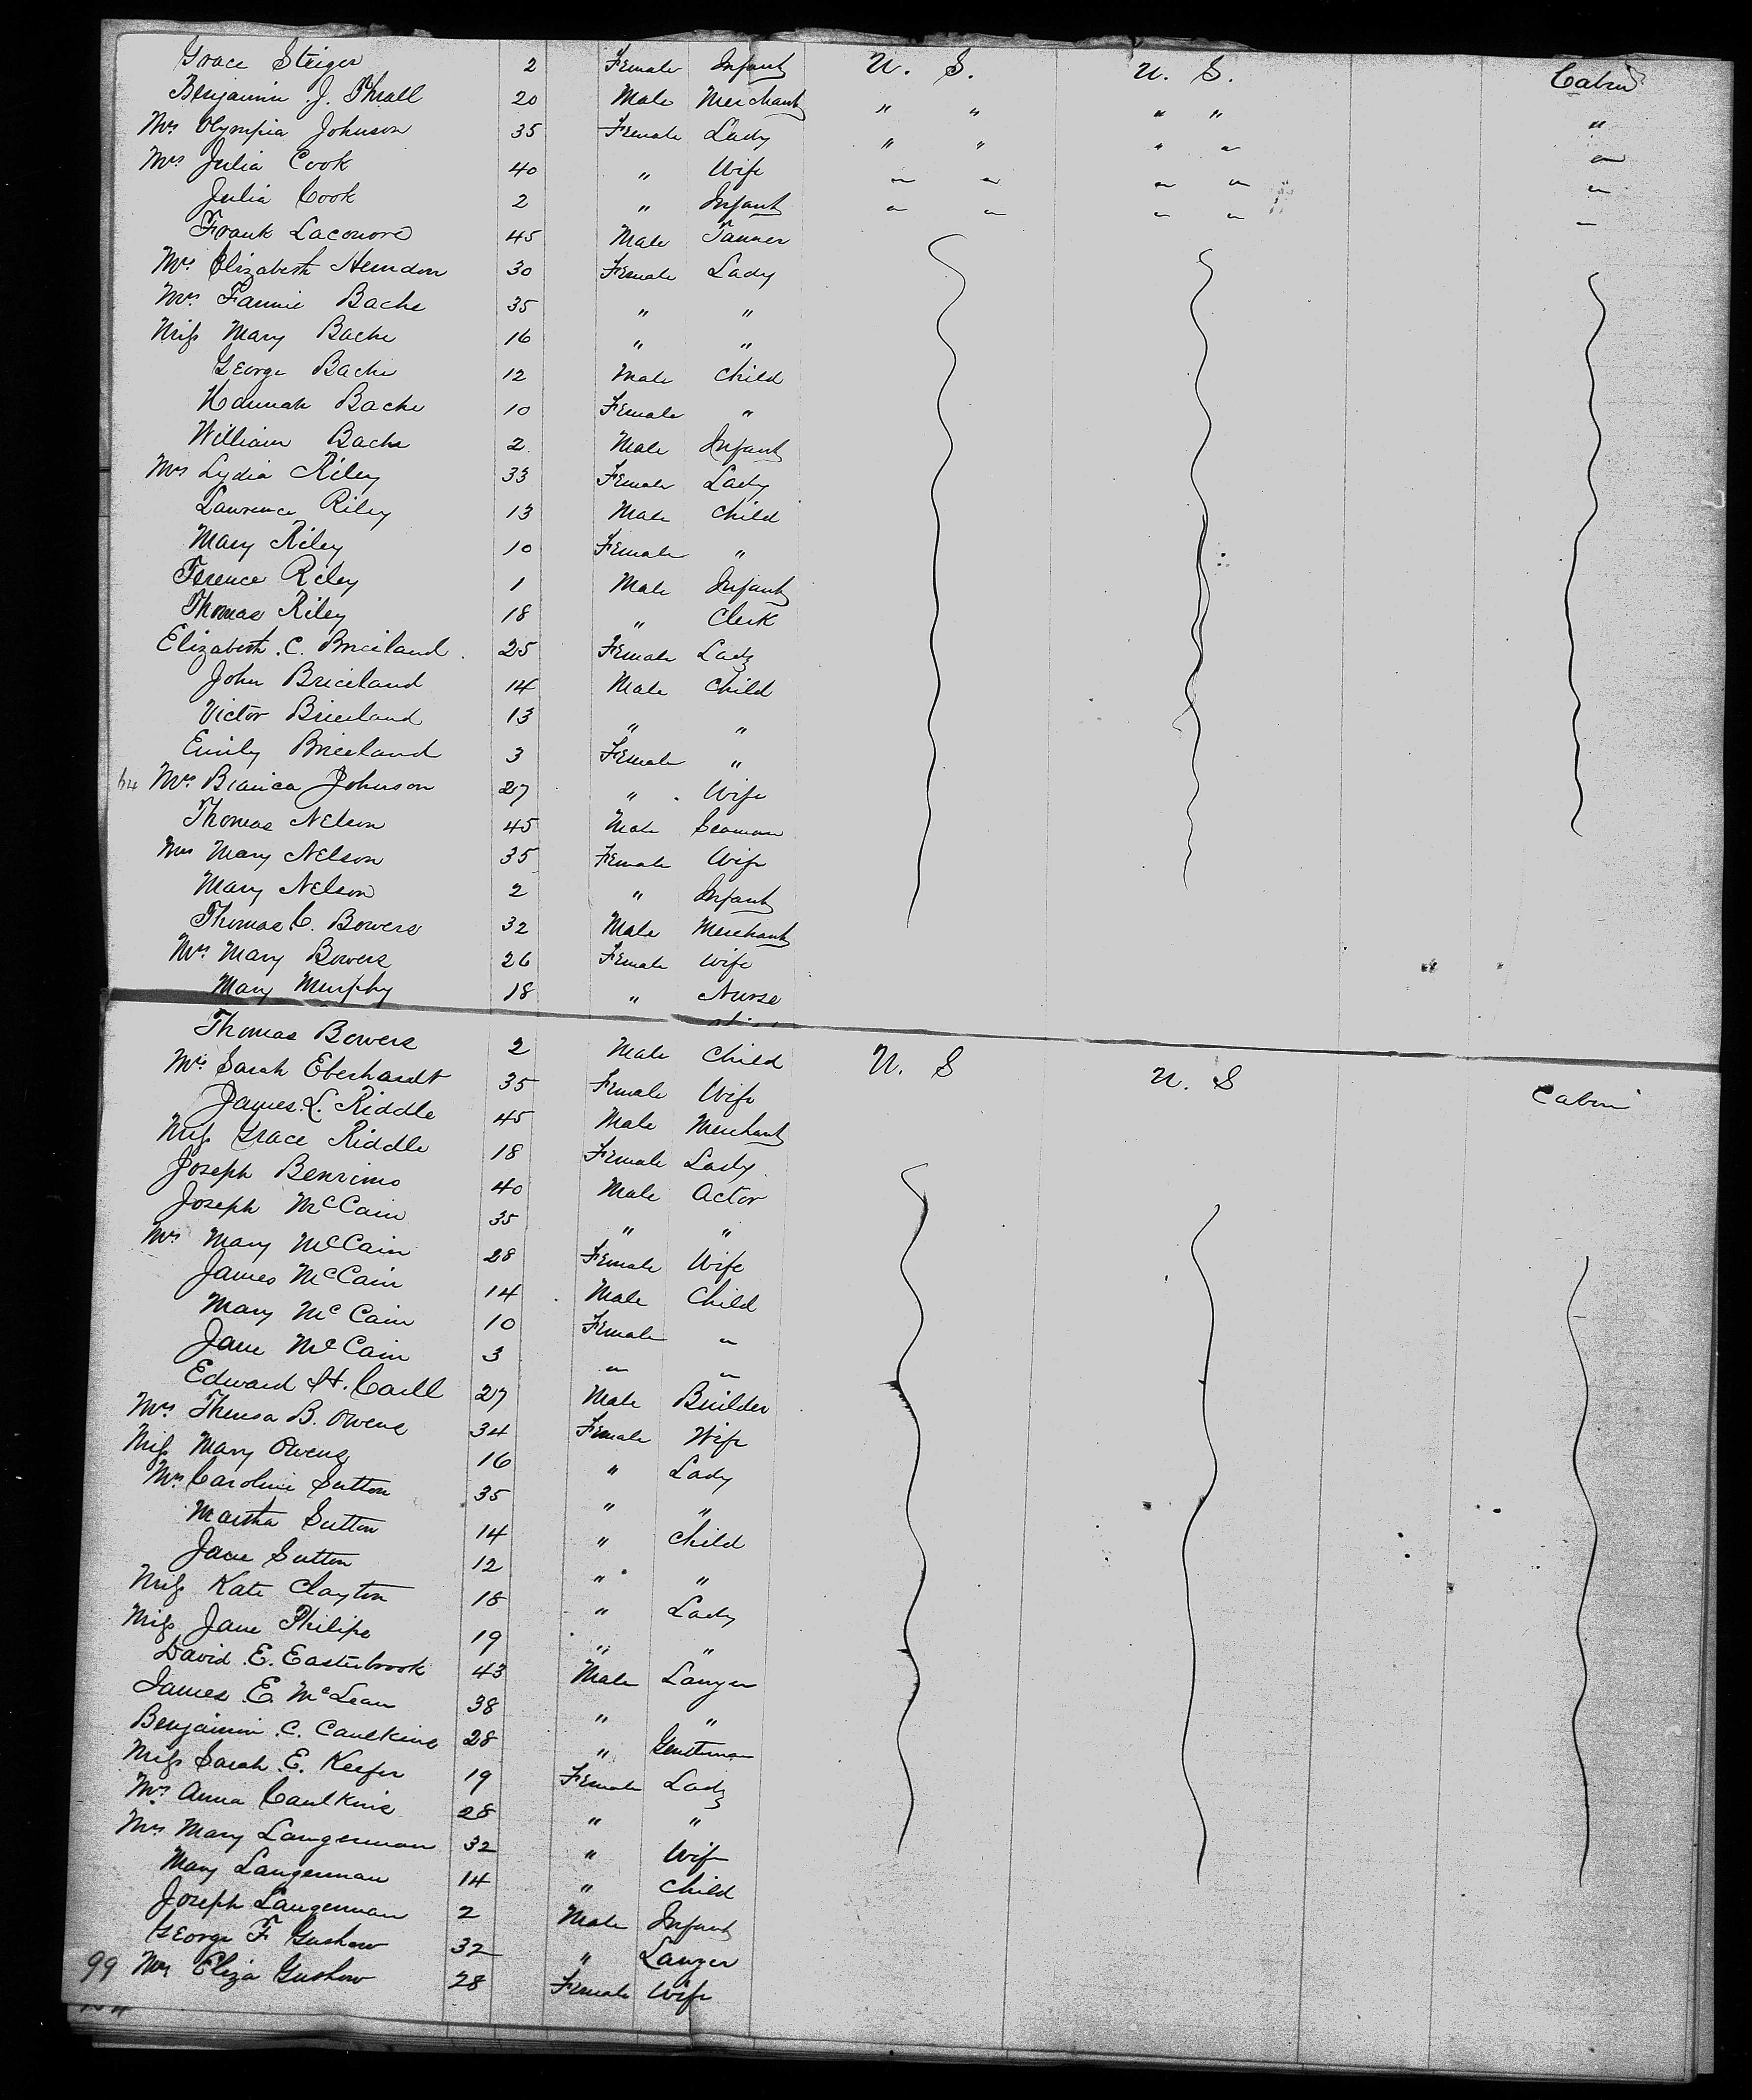 Grace Steiger 2 Female Infant U. S. U. S. Cabin
Benjamin J. Thrall 20 Male Merchant " " " " "
Mrs Olympia Johnson 35 Female Lady " " " " "
Mrs Julia Cook 40 " Wife " " " " "
Julia Cook 2 " Infant " " " " "
Frank Laconore 45 Male Tanner
Mrs Elizabeth Herndon 30 Female Lady
Mrs Fannie Bache 35 " "
Miss Mary Bache 16 " "
George Bache 12 Male Child
Hannah Bache 10 Female "
William Bache 2 Male Infant
Mrs Lydia Riley 33 Female Lady
Lawrence Riley 13 Male Child
Mary Riley 10 Female "
Terence Riley 1 Male Infant
Thomas Riley 18 " Clerk
Elizabeth C. Briceland 25 Female Lady
John Briceland 14 Male Child
Victor Briceland 13 " "
Emily Briceland 3 Female "
64 Mrs Bianca Johnson 27 " Wife
Thomas Nelson 45 Male Seaman
Mrs Mary Nelson 35 Female Wife
Mary Nelson 2 " Infant
Thomas C. Bowers 32 Male Merchant
Mrs Mary Bowers 26 Female Wife
Mary Murphy 18 " Nurse
Thomas Bowers 2 Male Child U. S U. S Cabin
Mrs Sarah Eberhardt 35 Female Wife
James L. Riddle 45 Male Merchant
Miss Grace Riddle 18 Female Lady
Joseph Benrimo 40 Male Actor
Joseph McCain 35 " "
Mrs Mary McCain 28 Female Wife
James McCain 14 Male Child
Mary McCain 10 Female "
Jane McCain 3 " "
Edward H. Carll 27 Male Builder
Mrs Theresa B. Owens 34 Female Wife
Miss Mary Owens 16 " Lady
Mrs Caroline Sutton 35 " "
Martha Sutton 14 " Child
Jane Sutton 12 " "
Miss Kate Clayton 18 " Lady
Miss Jane Philips 19 " "
David E. Easterbrook 43 Male Lawyer
James E. McLean 38 " "
Benjamin C. Caulkins 28 " Gentleman
Miss Sarah E. Keefer 19 Female Lady
Mrs Anna Caulkins 28 " "
Mrs Mary Langerman 32 " Wife
Mary Langerman 14 " Child
Joseph Langerman 2 Male Infant
George F Gushow 32 " Lawyer
99 Mrs Eliza Gushow 28 Female Wife